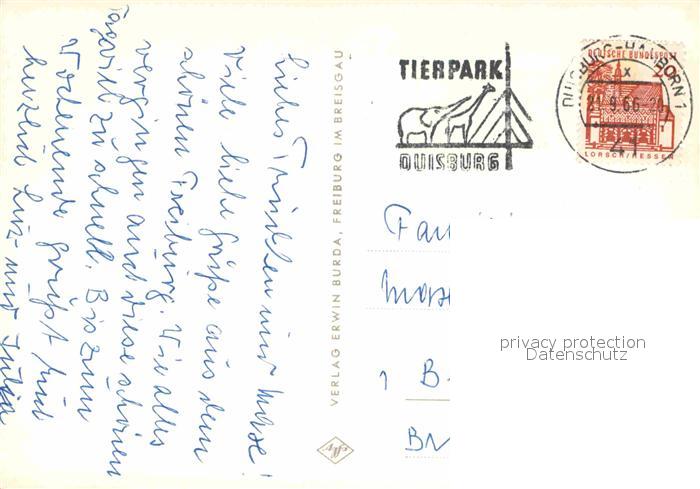 Liebes Trudchen und Maxe!
Viele liebe Grüße aus dem
schönen Freiburg. Wie alles
vergingen auch diese schönen
Tage viel zu schnell. Bis zum
Wochenende grüßt Euch
herzlich Luz und Julia
VERLAG ERWIN BURDA, FREIBURG IM BREISGAU
TIERPARK
DUISBURG
DUISBURG-HAMBORN 1
21.9.66
41
DEUTSCHE BUNDESPOST
20
LORSCH/HESSEN
Fam
1 B
privacy protection
Datenschutz